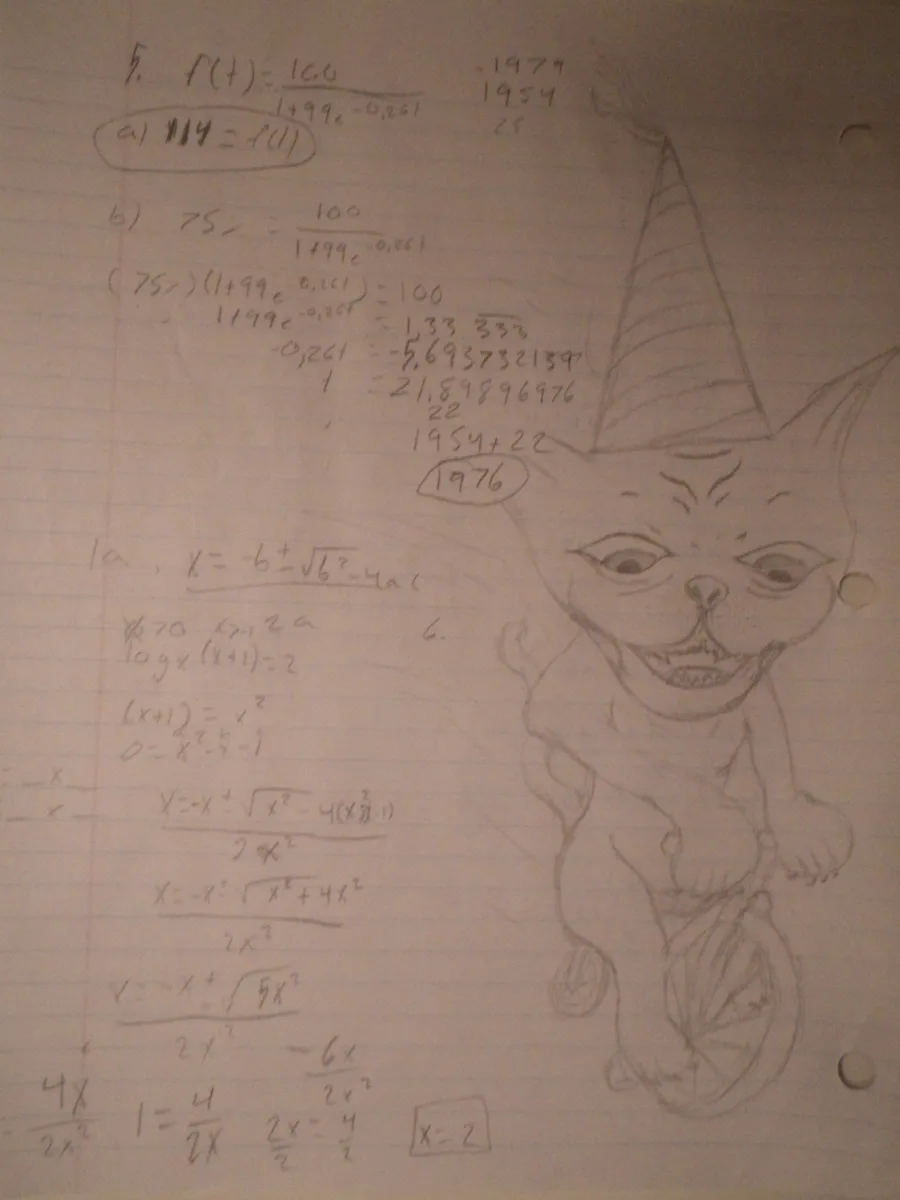 5. f(t) = 100
1+99e -0,26t
1979
1954
25
a) 114 = f(1)
b) 75% = 100
1+99e -0,26t
(75%)(1+99e -0,26t) = 100
1+99e -0,26t = 1,33 333
-0,26t = -5,693732139
t = 21,89896976
22
1954 + 22
1976
1a. x = -b ± √b² - 4ac
x>0 x>-1 2a
6.
log x (x+1) = 2
(x+1) = x²
0 = x² - x - 1
= x
x
x = -x ± √x² - 4(x²)(-1)
2x²
x = -x ± √x² + 4x²
2x²
x = -x ± √5x²
2x²
-6x
2x²
= 4x
2x²
1 = 4
2x
2x = 4
2 2
x = 2